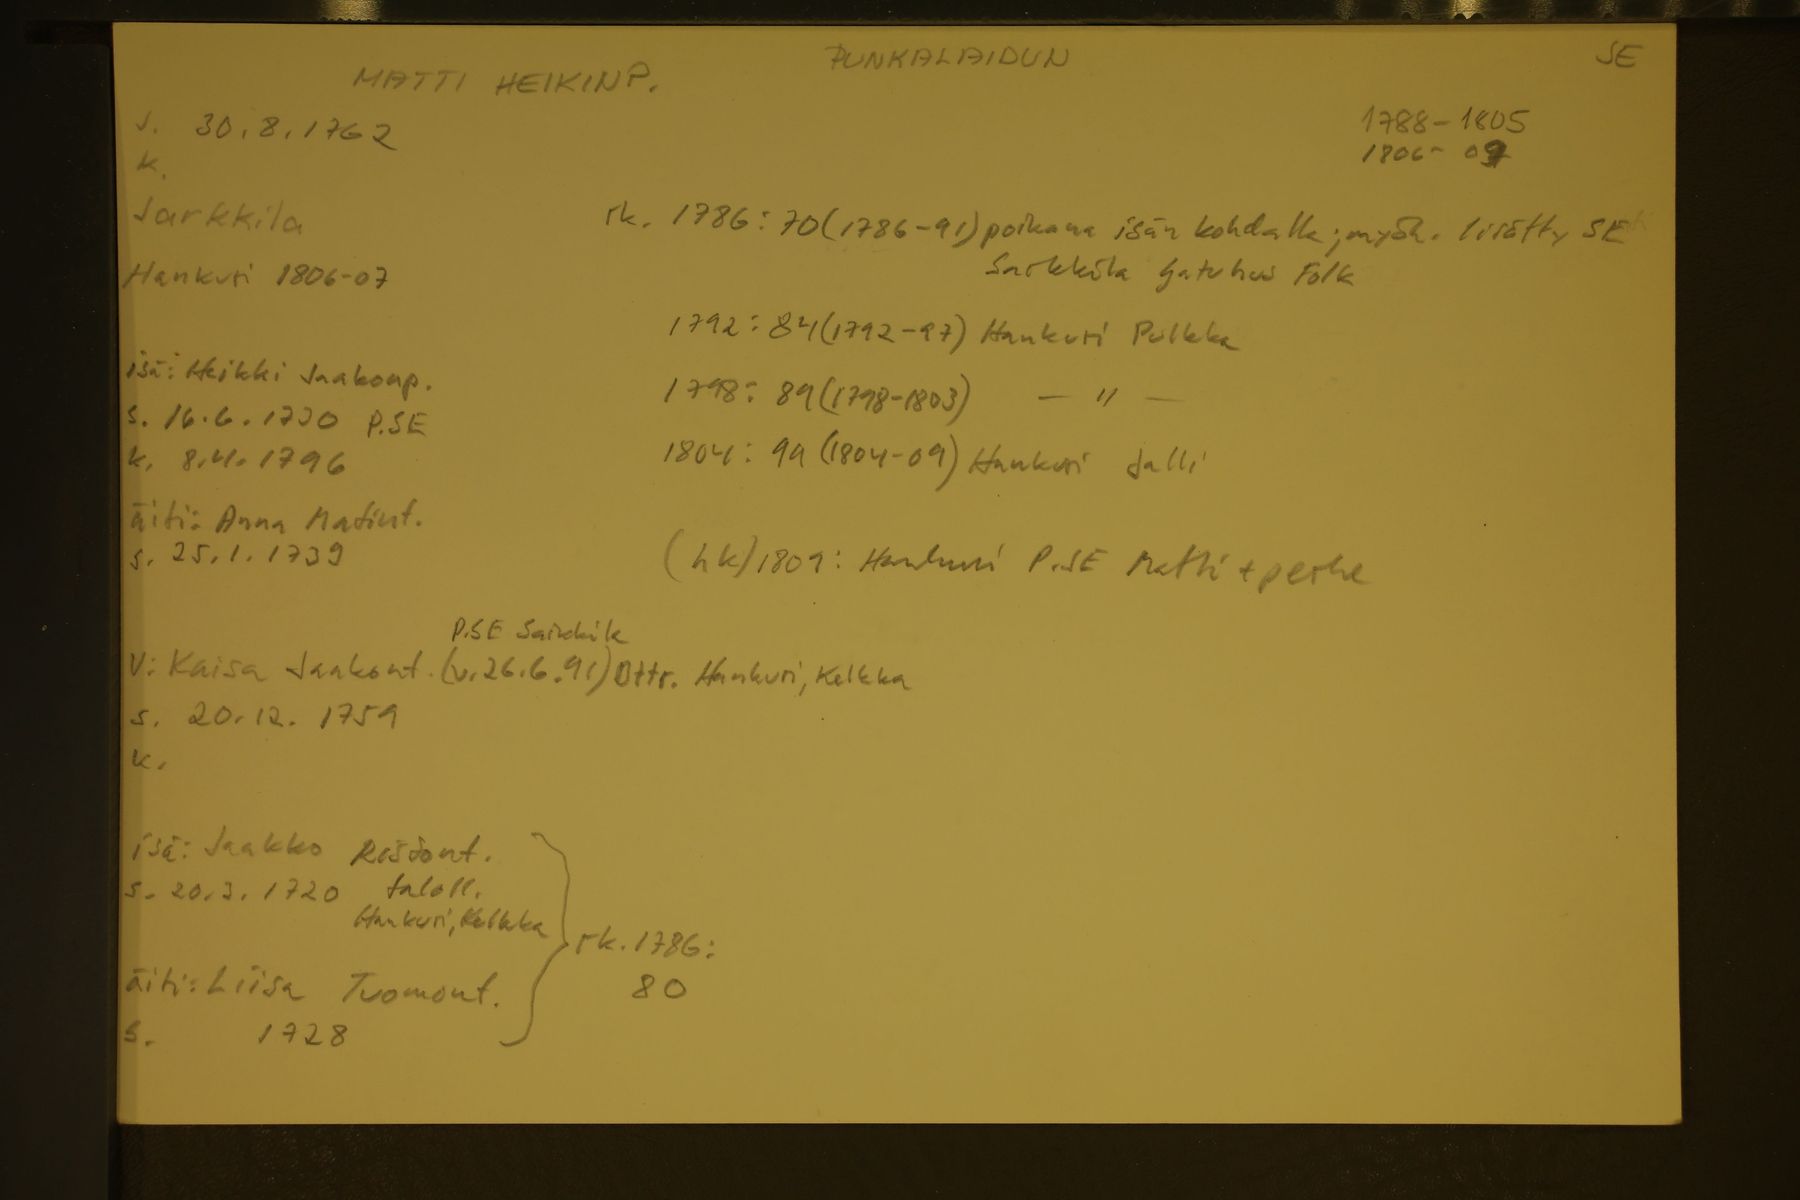 PUNKALAIDUN
SE
MATTI HEIKINP.
s. 30.8.1762
k.
1788-1805
1806-09
Sarkkila
Hankuri 1806-07
rk. 1786: 70 (1786-91) poikana isän kohdalla; myöh. lisätty SE
Sarkkila Gatuhus Folk
1792: 84 (1792-97) Hankuri Pulkka
1798: 89 (1798-1803) — " —
1804: 99 (1804-09) Hankuri Jalli
(hk) 1809: Hankuri P.SE Matti + perhe
isä: Heikki Jaakonp.
s. 16.6.1730 P.SE
k. 8.4.1796
äiti: Anna Matint.
s. 25.1.1739
P.SE Sarkkila
V: Kaisa Jaakont. (v. 26.6.91) Dttr. Hankuri, Kelkka
s. 20.12.1759
k.
isä: Jaakko Ristont.
s. 20.3.1720 taloll.
Hankuri, Kelkka
äiti: Liisa Tuomont.
s. 1728
rk. 1786:
80